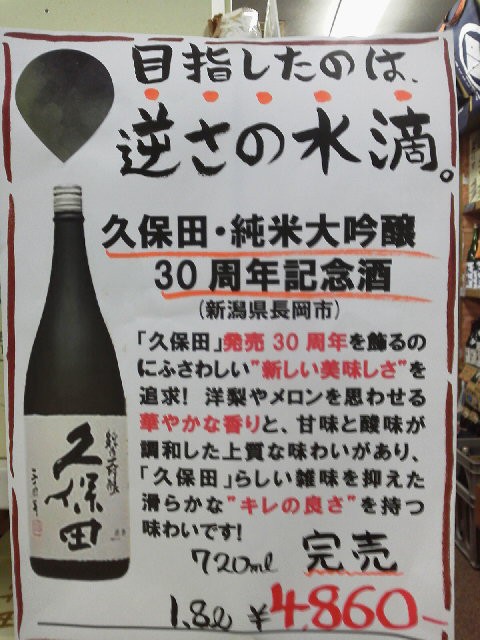 目指したのは、
逆さの水滴。
久保田・純米大吟醸
30周年記念酒
(新潟県長岡市)
「久保田」発売30周年を飾るの
にふさわしい"新しい美味しさ"を
追求! 洋梨やメロンを思わせる
華やかな香りと、甘味と酸味が
調和した上質な味わいがあり、
「久保田」らしい雑味を抑えた
滑らかな"キレの良さ"を持つ
味わいです!
720ml 完売
1.8ℓ ¥4,860-
純米大吟醸
久保田